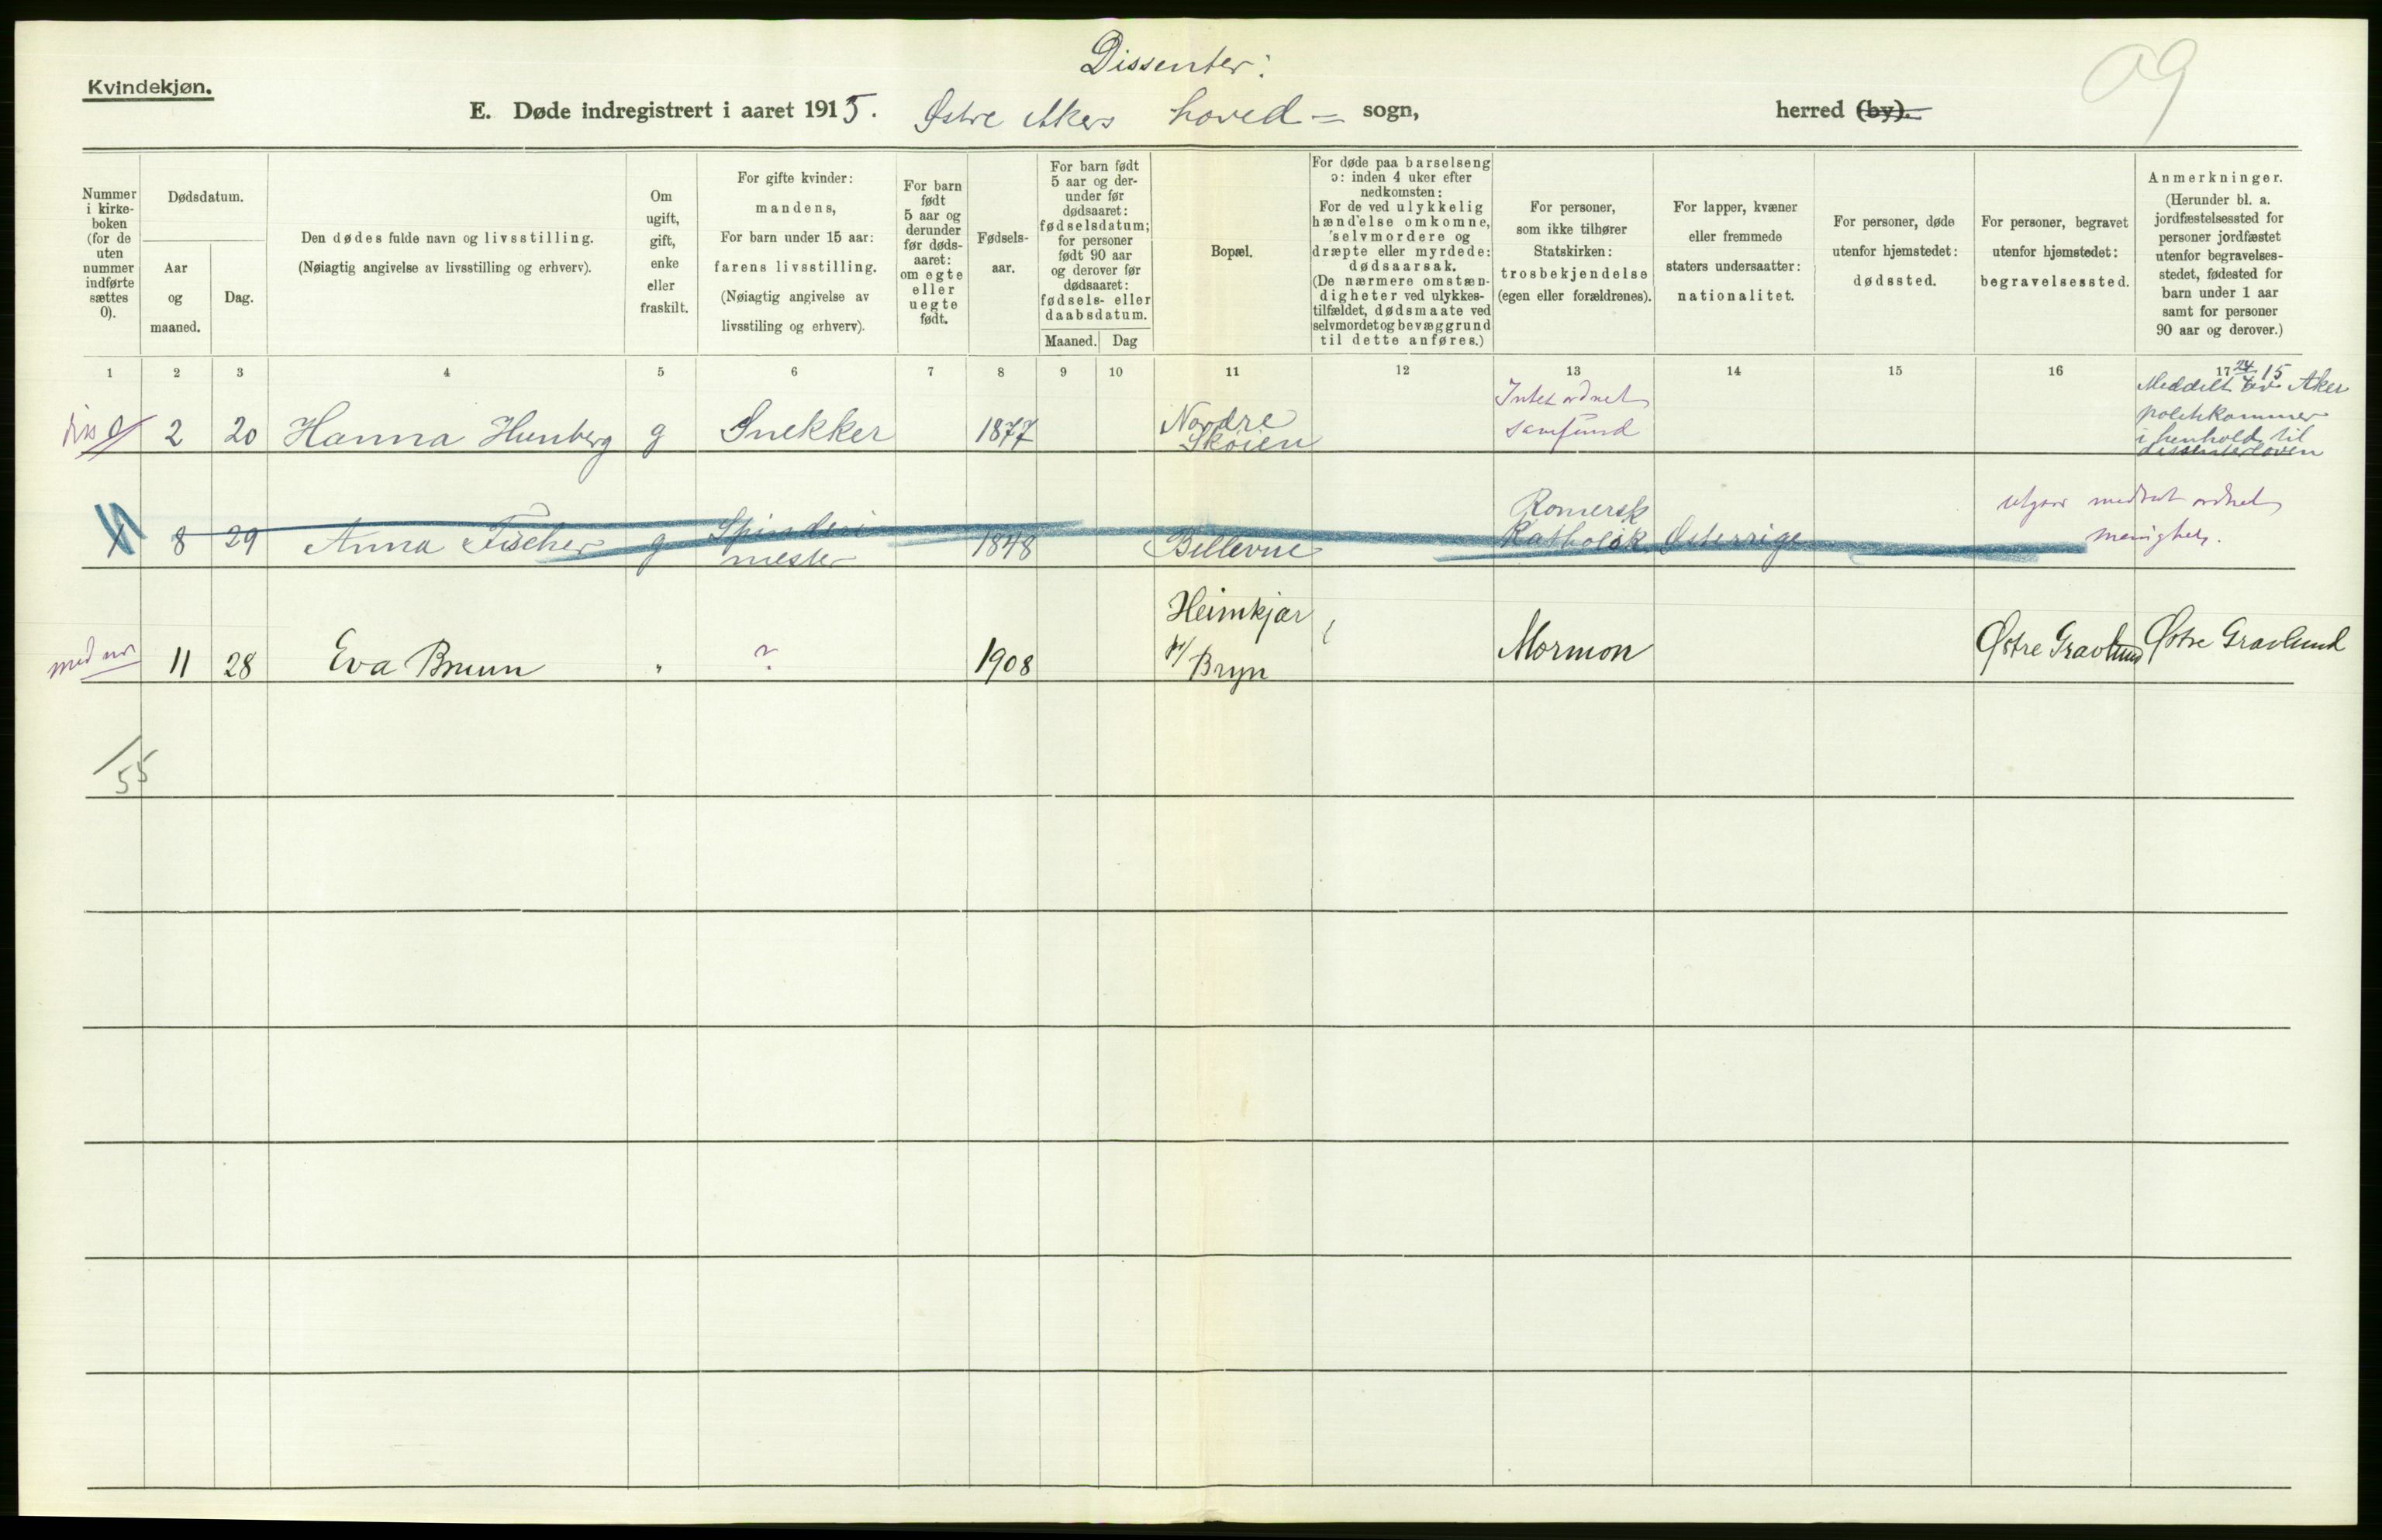 Dissenter:
Kvindekjøn.
E. Døde indregistrert i aaret 1915. Østre Akers hoved= sogn, herred (by).
09
Nummer i kirke-boken (for de uten nummer indførte sættes 0).
Dødsdatum.
Aar og maaned.
Dag.
Den dødes fulde navn og livsstilling.
(Nøiagtig angivelse av livsstilling og erhverv).
Om ugift, gift, enke eller fraskilt.
For gifte kvinder: mandens,
For barn under 15 aar: farens livsstilling.
(Nøiagtig angivelse av livsstiling og erhverv).
For barn født 5 aar og derunder før døds-aaret: om egte eller uegte født.
Fødsels-aar.
For barn født 5 aar og der-under før dødsaaret: fødselsdatum; for personer født 90 aar og derover før dødsaaret: fødsels- eller daabsdatum.
Maaned. Dag
Bopæl.
For døde paa barselseng ɔ: inden 4 uker efter nedkomsten:
For de ved ulykkelig hændelse omkomne, selvmordere og dræpte eller myrdede: dødsaarsak.
(De nærmere omstæn-digheter ved ulykkes-tilfældet, dødsmaate ved selvmord et og bevæggrund til dette anføres.)
For personer, som ikke tilhører Statskirken: trosbekjendelse (egen eller forældrenes).
For lapper, kvæner eller fremmede staters undersaatter: nationalitet.
For personer, døde utenfor hjemstedet: dødssted.
For personer, begravet utenfor hjemstedet: begravelsessted.
Anmerkninger.
(Herunder bl. a. jordfæstelsessted for personer jordfæstet utenfor begravelses-stedet, fødested for barn under 1 aar samt for personer 90 aar og derover.)
1 2 3 4 5 6 7 8 9 10 11 12 13 14 15 16 17
2 20 Hanna Hunberg g Snekker 1877 Nordre Skøien Intet ordnet samfund Meddelt Aker politikammer i henhold til dissenterloven
1 8 29 Anna Fischer g Spinderimester 1848 Bellevue Romersk Katholsk Østerrige utgaar medtat ordnet menighet.
11 28 Eva Bruun " ? 1908 Heimkjær p/ Bryn Mormon Østre Gravlund Østre Gravlund
55